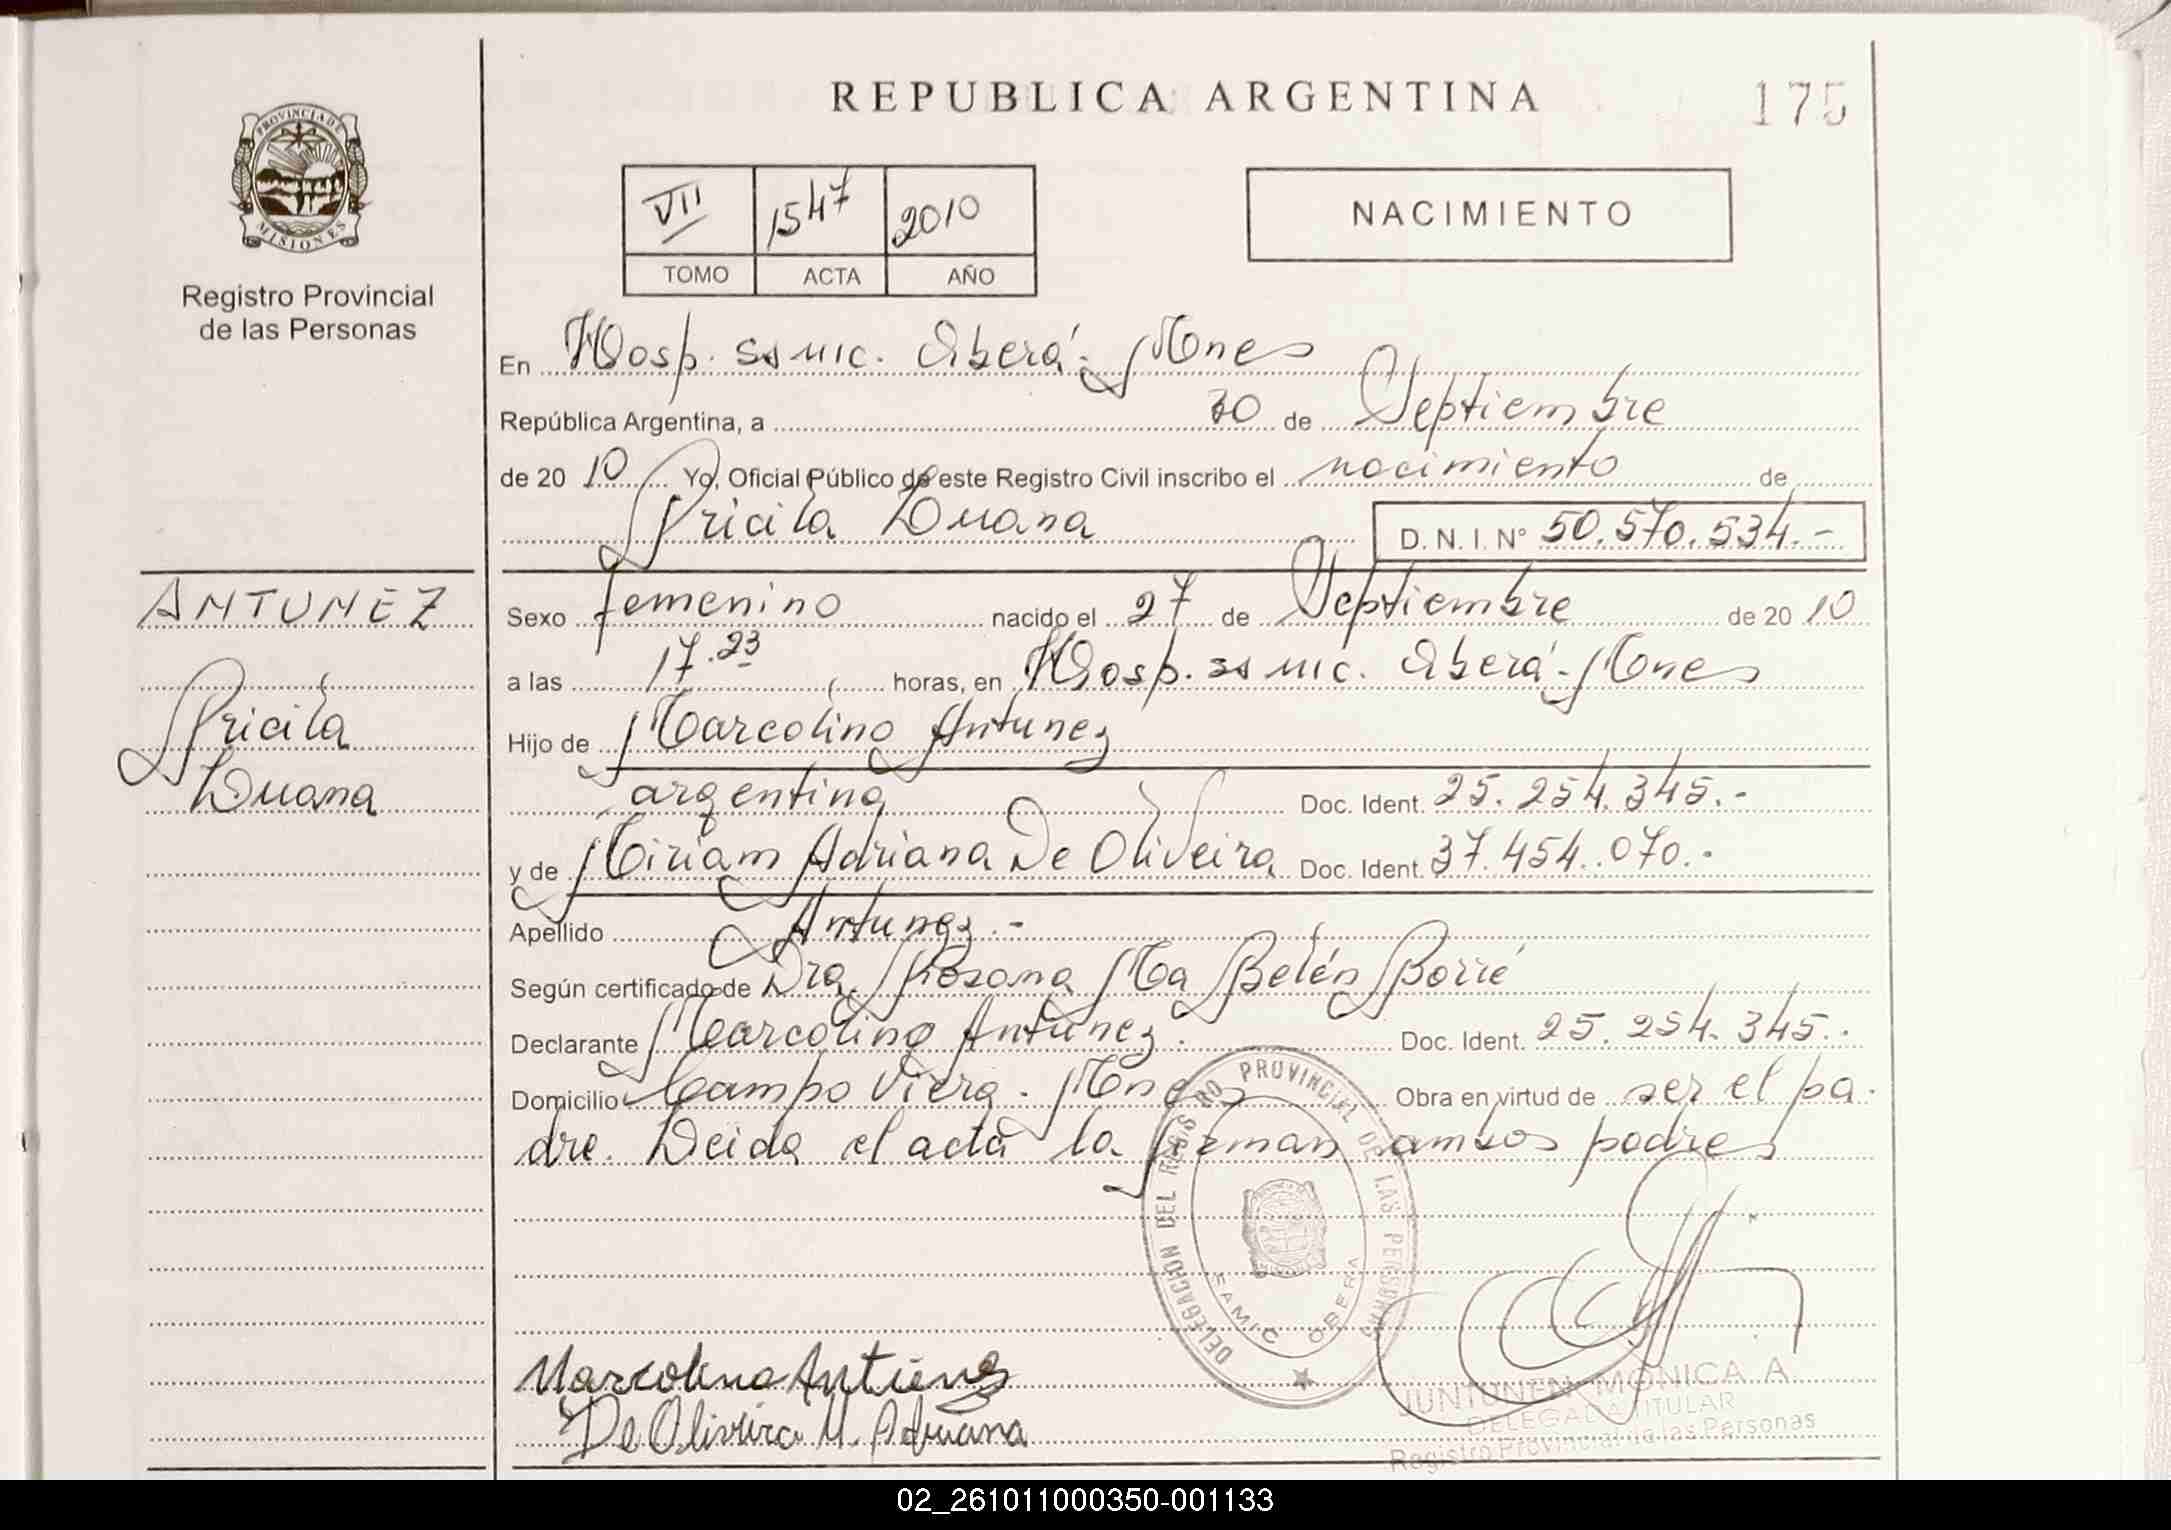 REPUBLICA ARGENTINA
175
PROVINCIA DE
MISIONES
Registro Provincial
de las Personas
VII 1547 2010
TOMO ACTA AÑO
NACIMIENTO
En Hosp. ss mic. Oberá. Mnes
República Argentina, a 30 de Septiembre
de 2010 Yo, Oficial Público de este Registro Civil inscribo el nacimiento de
Pricila Luana D. N. I. N° 50.570.534.-
ANTUNEZ
Pricila
Luana
Sexo femenino nacido el 27 de Septiembre de 2010
a las 17.23 horas, en Hosp. ss mic. Oberá-Mnes
Hijo de Marcolino Antunez
argentino Doc. Ident. 25.254.345.-
y de Miriam Adriana De Oliveira Doc. Ident. 37.454.070.-
Apellido Antunez.-
Según certificado de Dra. Rosana Ma Belén Borré
Declarante Marcolino Antunez. Doc. Ident. 25.254.345.-
Domicilio Campo Viera. Mnes Obra en virtud de ser el pa-
dre. Leida el acta la firman ambos padres
DELEGACION DEL REGISTRO PROVINCIAL DE LAS PERSONAS
SAMIC OBERA
Marcolino Antunez
De Oliveira M. Adriana
JUNTUNEN MONICA A
DELEGADA TITULAR
Registro Provincial de las Personas
02_261011000350-001133